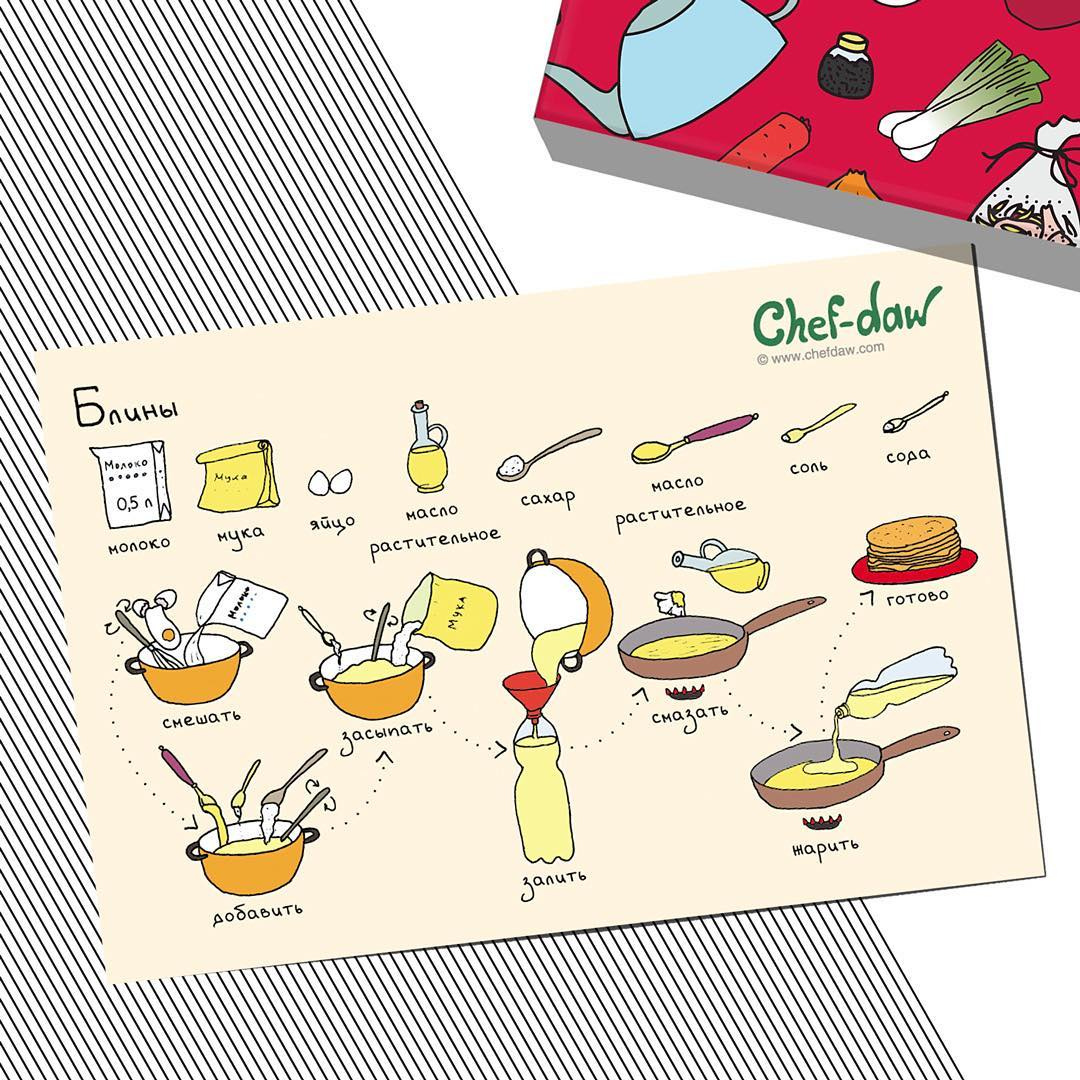 Chef-daw
© www.chefdaw.com
Блины
Молоко
0,5 л
молоко
Мука
мука
яйцо
масло
растительное
сахар
масло
растительное
соль
сода
Молоко
смешать
Мука
засыпать
добавить
залить
смазать
жарить
готово